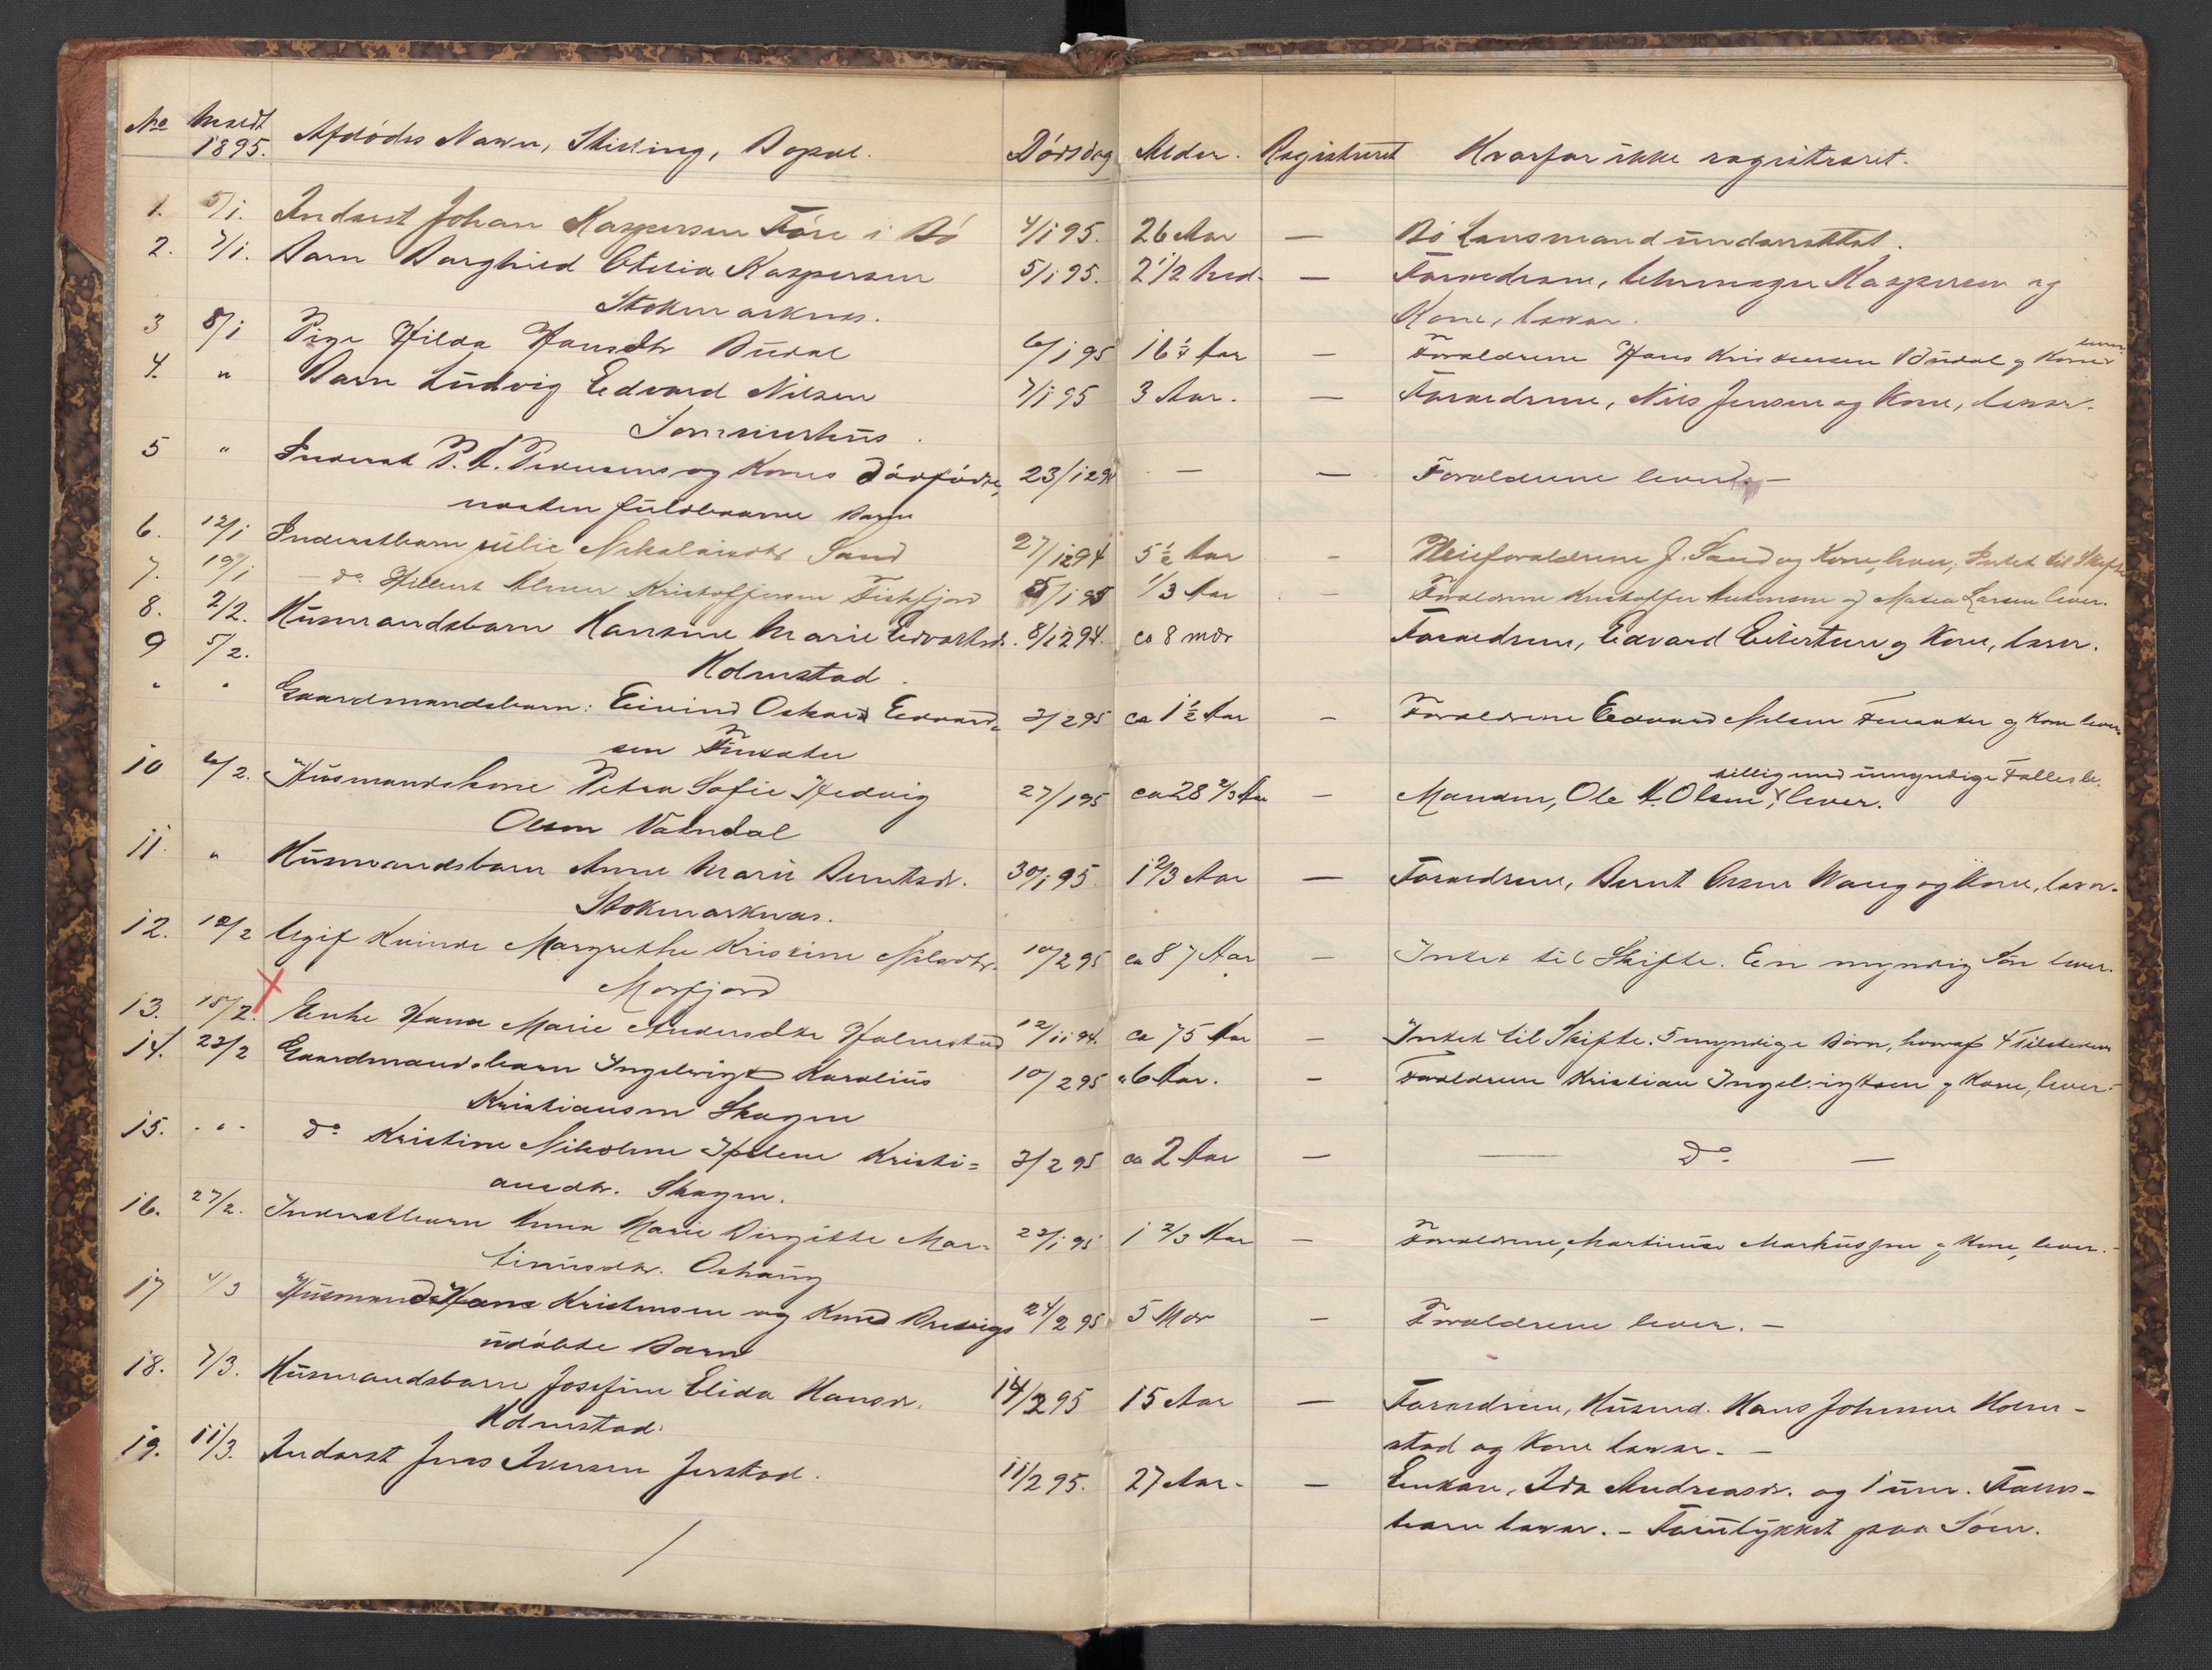 No Meldt 1895. Afdødes Navn, Stilling, Bopæl. Dødsdag Alder. Registreret Hvorfor ikke registreret.
1. 5/1. Inderst Johan Kaspersen Føre i Bø 4/1 95. 26 Aar — Bø Lensmand underrettet.
2. 7/1. Barn Borghild Otelia Kaspersen 5/1 95. 2 1/2 Md. — Forældrene, Kaspersen og
Stokmarknes. Kone, lever.
3 8/1 Pige Hilda Hansdtr Budal 6/1 95 16 1/4 Aar — Forældrene Hans Kristensen Budal og Kone lever
4. " Barn Ludvig Edvard Nilsen 7/1 95 3 Aar. — Forældrene, Nils Jensen og Kone, lever.
5 " Inderst P. A. Pedersens og Kones dødfødte, 23/12 94 — — Forældrene lever. —
næsten fuldbaarne Barn
6. 12/1 Inderstbarn Julie Nikolaisdtr Sand 27/12 94 5 1/2 Aar - Pleieforældrene J. Sand og Kone, lever, Intet til Skifte
7. 19/1 — do Hilbert Elmer Kristoffersen Fiskfjord 5/1 95 1/3 Aar - Forældrene Kristoffer Antonsen og Larsen lever.
8. 2/2. Husmandsbarn Hansine Marie Edvardsdr. 8/12 94. ca 8 mdr Forældrene, Edvard Eilertsen og Kone, lever.
9 5/2. Holmstad.
" " Gaardmandsbarn: Eivind Oskar Edvard- 3/2 95 ca 1 1/2 Aar - Forældrene Edvard Nilsen og Kone lever
sen
10 6/2. Husmandskone Petra Sofie Hedvig 27/1 95 ca 28 2/3 Aar — Manden, Ole K. Olsen, lever.
tilligemed umyndige Fællesb.
Olsen Vatndal
11. " Husmandsbarn Anne Marie Berntsdr. 30/1 95 1 2/3 Aar — Forældrene, Bernt Olsen Wang og Kone, lever.
Stokmarknes.
12. 12/2 Ugift Kvinde Margrethe Kristine Nilsdtr. 10/2 95 ca 87 Aar - Intet til Skifte. En myndig Søn lever.
Morfjord
13. 15/2. Enke Hanna Marie Andersdtr Holmstad 12/11 94. ca 75 Aar - Intet til Skifte. 5 myndige Børn, hvoraf 4 tilstede
14. 23/2 Gaardmandsbarn Ingebrigt Karolius 10/2 95 "6 Aar. - Forældrene Kristian Ingebrigtsen og Kone, lever.
Kristiansen Skagen
15. - " - do Kristine Nikoline Helene Kristi= 3/2 95 ca 2 Aar — — do —
ansdtr. Skagen.
16. 27/2. Inderstbarn Anna Marie Birgitte Mar- 22/1 95 1 2/3 Aar — Forældrene, Martinus Markussen og Kone, lever. -
tinusdtr. Oshaug
17 4/3 Husmand Hans Kristensen og Kone 24/2 95 5 Mdr — Forældrene lever. —
udøbte Barn
18. 7/3. Husmandsbarn Josefine Elida Hansdr. 14/2 95 15 Aar — Forældrene, Husmd. Hans Johnsen Holm-
Holmstad. stad og Kone lever. —
19. 11/3. Inderst Jens Iversen Jerstad. 11/2 95. 27 Aar. — Enken, Ida Andreasdr. og 1 um. Fælles-
barn lever. - Forulykket paa Søen.